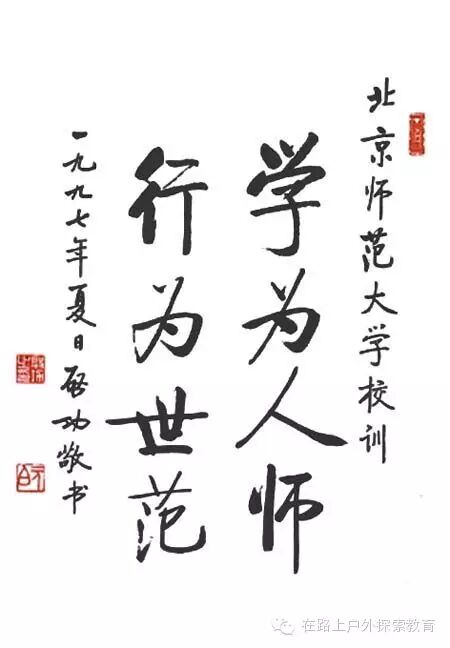 北京师范大学校训
学为人师
行为世范
一九九七年夏日启功敬书
在路上户外探索教育